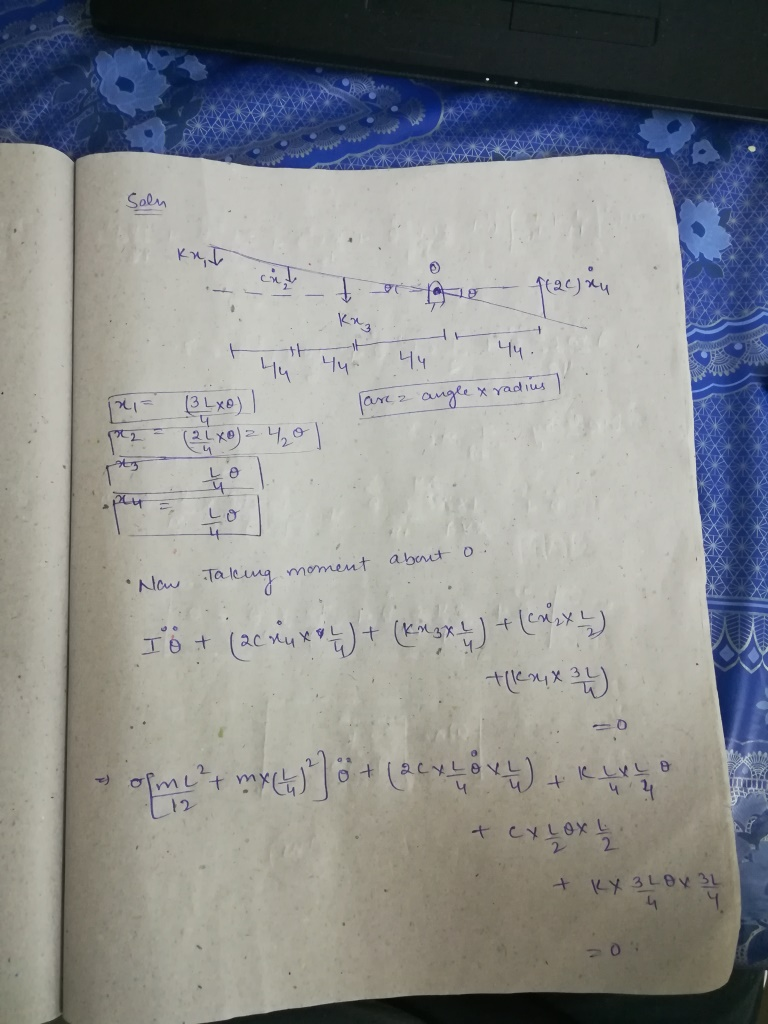 Soln
O
Kx₁
cẋ₂
(2c)ẋ₄
θ
θ
Kx₃
L/4 L/4 L/4 L/4
x₁ = (3L/4 × θ)
arc = angle × radius
x₂ = (2L/4 × θ) = L/2 θ
x₃ L/4 θ
x₄ = L/4 θ
Now Taking moment about O.
Iθ̈ + (2cẋ₄ × L/4) + (Kx₃ × L/4) + (cẋ₂ × L/2)
+ (Kx₁ × 3L/4)
= 0
⇒ [mL²/12 + m × (L/4)²] θ̈ + (2c × L/4 θ̇ × L/4) + K L/4 × L/4 θ
+ c × L/2 θ × L/2
+ K × 3L/4 θ × 3L/4
= 0.